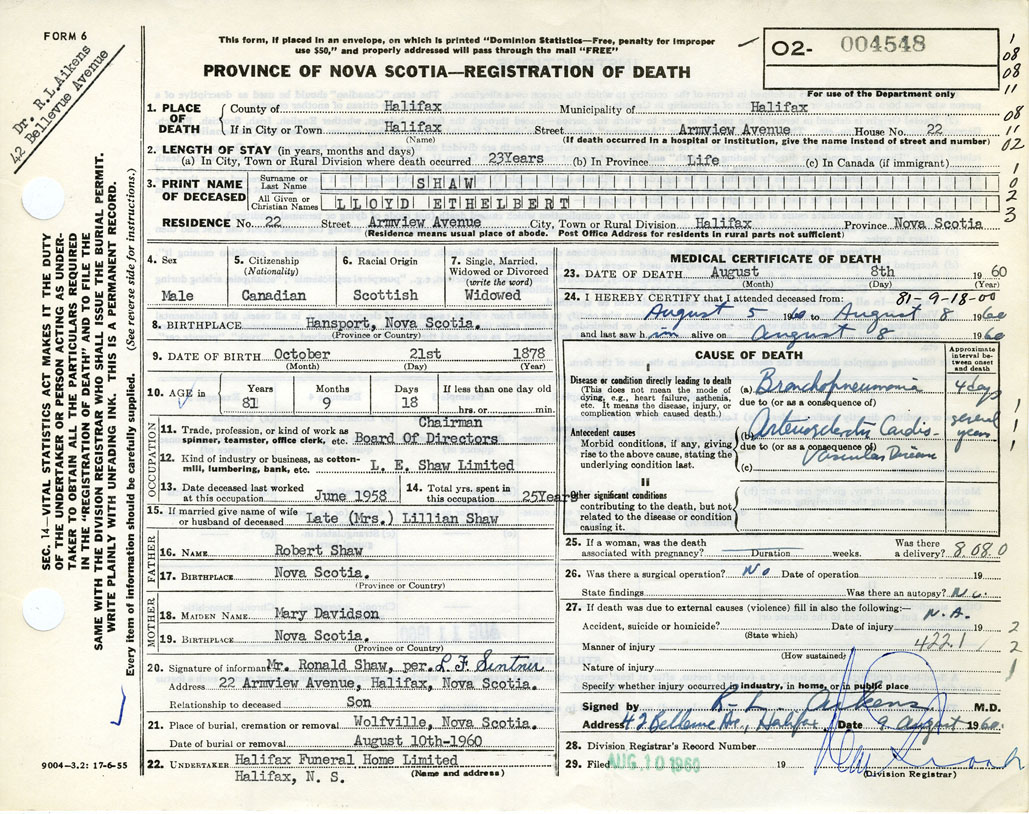 FORM 6
Dr. R.L.Aikens
42 Bellevue Avenue
This form, if placed in an envelope, on which is printed "Dominion Statistics—Free, penalty for improper
use $50," and properly addressed will pass through the mail "FREE"
PROVINCE OF NOVA SCOTIA—REGISTRATION OF DEATH
02- 004548
For use of the Department only
1
08
08
11
08
11
02
1
0
2
3
SEC. 14—VITAL STATISTICS ACT MAKES IT THE DUTY
OF THE UNDERTAKER OR PERSON ACTING AS UNDER-
TAKER TO OBTAIN ALL THE PARTICULARS REQUIRED
IN THE "REGISTRATION OF DEATH" AND TO FILE THE
SAME WITH THE DIVISION REGISTRAR WHO SHALL ISSUE THE BURIAL PERMIT.
WRITE PLAINLY WITH UNFADING INK. THIS IS A PERMANENT RECORD.
Every item of information should be carefully supplied. (See reverse side for instructions.)
1. PLACE OF DEATH
County of Halifax Municipality of Halifax
If in City or Town Halifax Street Armview Avenue House No. 22
(Name) (If death occurred in a hospital or institution, give the name instead of street and number)
2. LENGTH OF STAY (in years, months and days)
(a) In City, Town or Rural Division where death occurred 23Years (b) In Province Life (c) In Canada (if immigrant)
3. PRINT NAME OF DECEASED
Surname or Last Name SHAW
All Given or Christian Names LLOYD ETHELBERT
RESIDENCE No. 22 Street Armview Avenue City, Town or Rural Division Halifax Province Nova Scotia
(Residence means usual place of abode. Post Office Address for residents in rural parts not sufficient)
4. Sex
Male
5. Citizenship
(Nationality)
Canadian
6. Racial Origin
Scottish
7. Single, Married,
Widowed or Divorced
(write the word)
Widowed
8. BIRTHPLACE Hansport, Nova Scotia.
(Province or Country)
9. DATE OF BIRTH October 21st 1878
(Month) (Day) (Year)
10. AGE in
Years Months Days If less than one day old
81 9 18 hrs. or min.
OCCUPATION
11. Trade, profession, or kind of work as
spinner, teamster, office clerk, etc.
Chairman
Board Of Directors
12. Kind of industry or business, as cotton-
mill, lumbering, bank, etc. L. E. Shaw Limited
13. Date deceased last worked
at this occupation June 1958
14. Total yrs. spent in
this occupation 25Years
15. If married give name of wife
or husband of deceased Late (Mrs.) Lillian Shaw
FATHER
16. NAME Robert Shaw
17. BIRTHPLACE Nova Scotia.
(Province or Country)
MOTHER
18. MAIDEN NAME Mary Davidson
19. BIRTHPLACE Nova Scotia.
(Province or Country)
20. Signature of informant Mr. Ronald Shaw, per. L.F. Sentner
Address 22 Armview Avenue, Halifax, Nova Scotia.
Relationship to deceased Son
21. Place of burial, cremation or removal Wolfville, Nova Scotia.
Date of burial or removal August 10th-1960
22. UNDERTAKER Halifax Funeral Home Limited
Halifax, N. S. (Name and address)
9004—3.2: 17-6-55
MEDICAL CERTIFICATE OF DEATH
23. DATE OF DEATH August 8th 1960
(Month) (Day) (Year)
24. I HEREBY CERTIFY that I attended deceased from: 81-9-18-00
August 5 1960 to August 8 1960
and last saw h im alive on August 8 1960
CAUSE OF DEATH
Approximate
interval be-
tween onset
and death
I
Disease or condition directly leading to death
(This does not mean the mode of
dying, e.g., heart failure, asthenia,
etc. It means the disease, injury, or
complication which caused death.)
(a) Bronchopneumonia 4 days
due to (or as a consequence of)
Antecedent causes
Morbid conditions, if any, giving
rise to the above cause, stating the
underlying condition last.
(b) Arteriosclerotic Cardio- several
due to (or as a consequence of) years
Vascular Disease
(c)
1
1
1
II
Other significant conditions
contributing to the death, but not
related to the disease or condition
causing it.
25. If a woman, was the death
associated with pregnancy? Duration weeks.
Was there
a delivery? 8.08.0
26. Was there a surgical operation? No Date of operation 19
State findings Was there an autopsy? No
27. If death was due to external causes (violence) fill in also the following:—
N.A.
Accident, suicide or homicide? Date of injury 19 2
(State which)
Manner of injury 422.1 2
(How sustained)
Nature of injury 1
Specify whether injury occurred in industry, in home, or in public place
Signed by R. L. Aikens M.D.
Address 42 Bellevue Ave., Halifax Date 9 August 1960.
28. Division Registrar's Record Number
29. Filed AUG 10 1960 19
(Division Registrar)